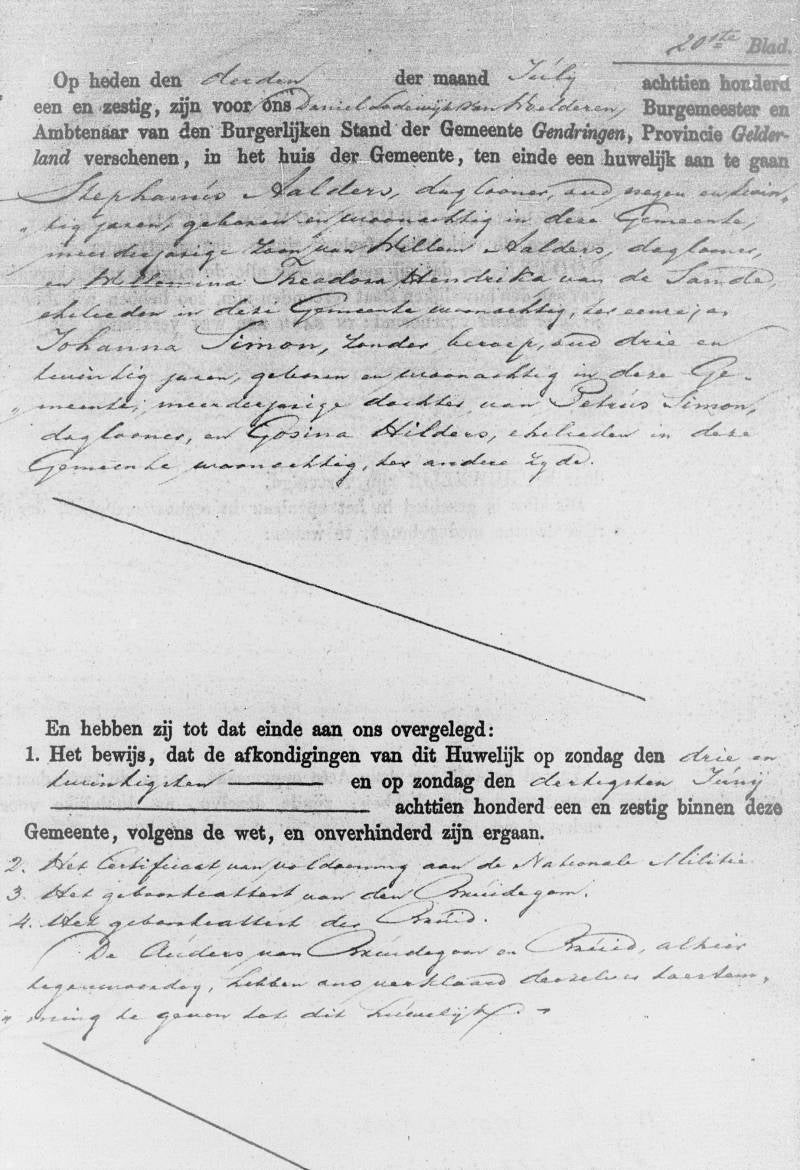 20ste Blad.
Op heden den derden der maand Julij achttien honderd
een en zestig, zijn voor ons Daniel Lodewijk van Heelderen, Burgemeester en
Ambtenaar van den Burgerlijken Stand der Gemeente Gendringen, Provincie Gelder-
land verschenen, in het huis der Gemeente, ten einde een huwelijk aan te gaan
Stephanus Aalders, daglooner, oud negen en twin„
„tig jaren, geboren en woonachtig in deze Gemeente,
meerderjarige zoon van Willem Aalders, daglooner,
en Willemina Theodora Hendrika van de Sande,
ehelieden in deze Gemeente woonachtig, ter eenre; en
Johanna Simon, zonder beroep, oud drie en
twintig jaren, geboren en woonachtig in deze Ge„
„meente, meerderjarige dochter van Petrus Simon,
daglooner, en Gosina Hilders, ehelieden in deze
Gemeente woonachtig, ter andere zyde.
En hebben zij tot dat einde aan ons overgelegd:
1. Het bewijs, dat de afkondigingen van dit Huwelijk op zondag den drie en
twintigsten en op zondag den dertigsten Junij
achttien honderd een en zestig binnen deze
Gemeente, volgens de wet, en onverhinderd zijn ergaan.
2. Het Certificaat van voldoening aan de Nationale Militie
3. Het geboorteattest van den Bruidegom.
4. Het geboorteattest der Bruid.
De Ouders van Bruidegom en Bruid, alhier
tegenwoordig, hebben ons verklaard derzelver toestem„
„ming te geven tot dit huwelijk.